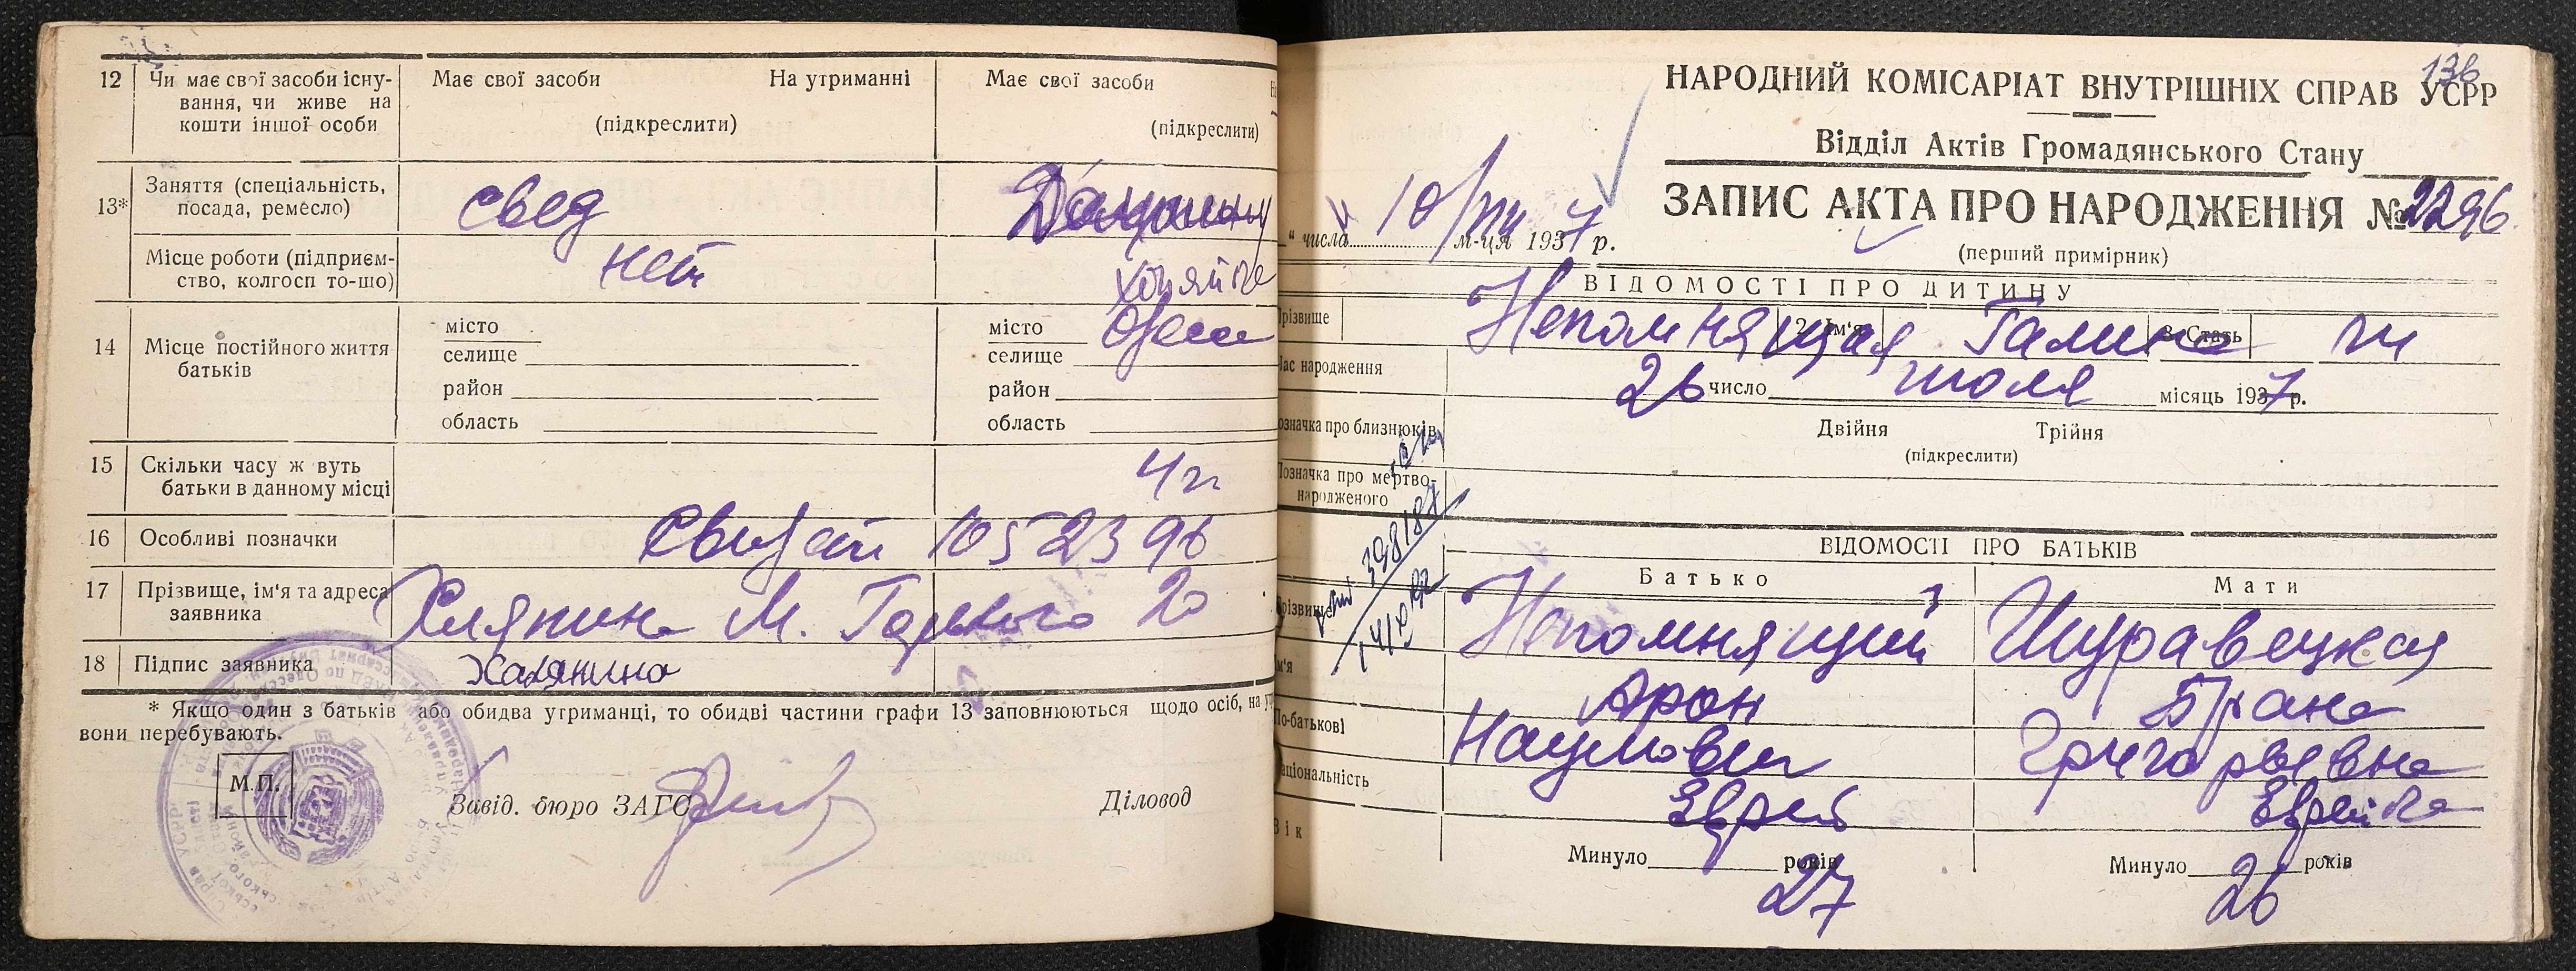 12 Чи має свої засоби існу-
вання, чи живе на
кошти іншої особи
Має свої засоби На утриманні
(підкреслити)
Має свої засоби
(підкреслити)
13* Заняття (спеціальність,
посада, ремесло)
свед
Місце роботи (підприєм-
ство, колгосп то-що)
нет
14 Місце постійного життя
батьків
місто
селище
район
область
місто Одесса
селище
район
область
15 Скільки часу ж вуть
батьки в данному місці
4 г
16 Особливі позначки
1052396
17 Прізвище, ім'я та адреса
заявника
М. Горького 20
18 Підпис заявника
* Якщо один з батьків або обидва утриманці, то обидві частини графи 13 заповнюються щодо осіб, на
вони перебувають.
М.П.
Завід. бюро ЗАГС
Діловод
136
НАРОДНИЙ КОМІСАРІАТ ВНУТРІШНІХ СПРАВ УСРР
Відділ Актів Громадянського Стану
ЗАПИС АКТА ПРО НАРОДЖЕННЯ № 2296
(перший примірник)
" числа 10/VIII м-ця 1937 р.
ВІДОМОСТІ ПРО ДИТИНУ
різвище Непомнящая 2. Ім'я Галина 3. Стать
ас народження
26 число июля місяць 1937 р.
означка про близнюків
Двійня Трійня
(підкреслити)
Позначка про мертво-
народженого
398187
ВІДОМОСТІ ПРО БАТЬКІВ
Батько Мати
різвище Непомнящий Шуравецкая
м'я Арон Брана
По-батькові Наумович Григорьевна
аціональність Еврей Еврейка
Вік
Минуло 27 років
Минуло 26 років